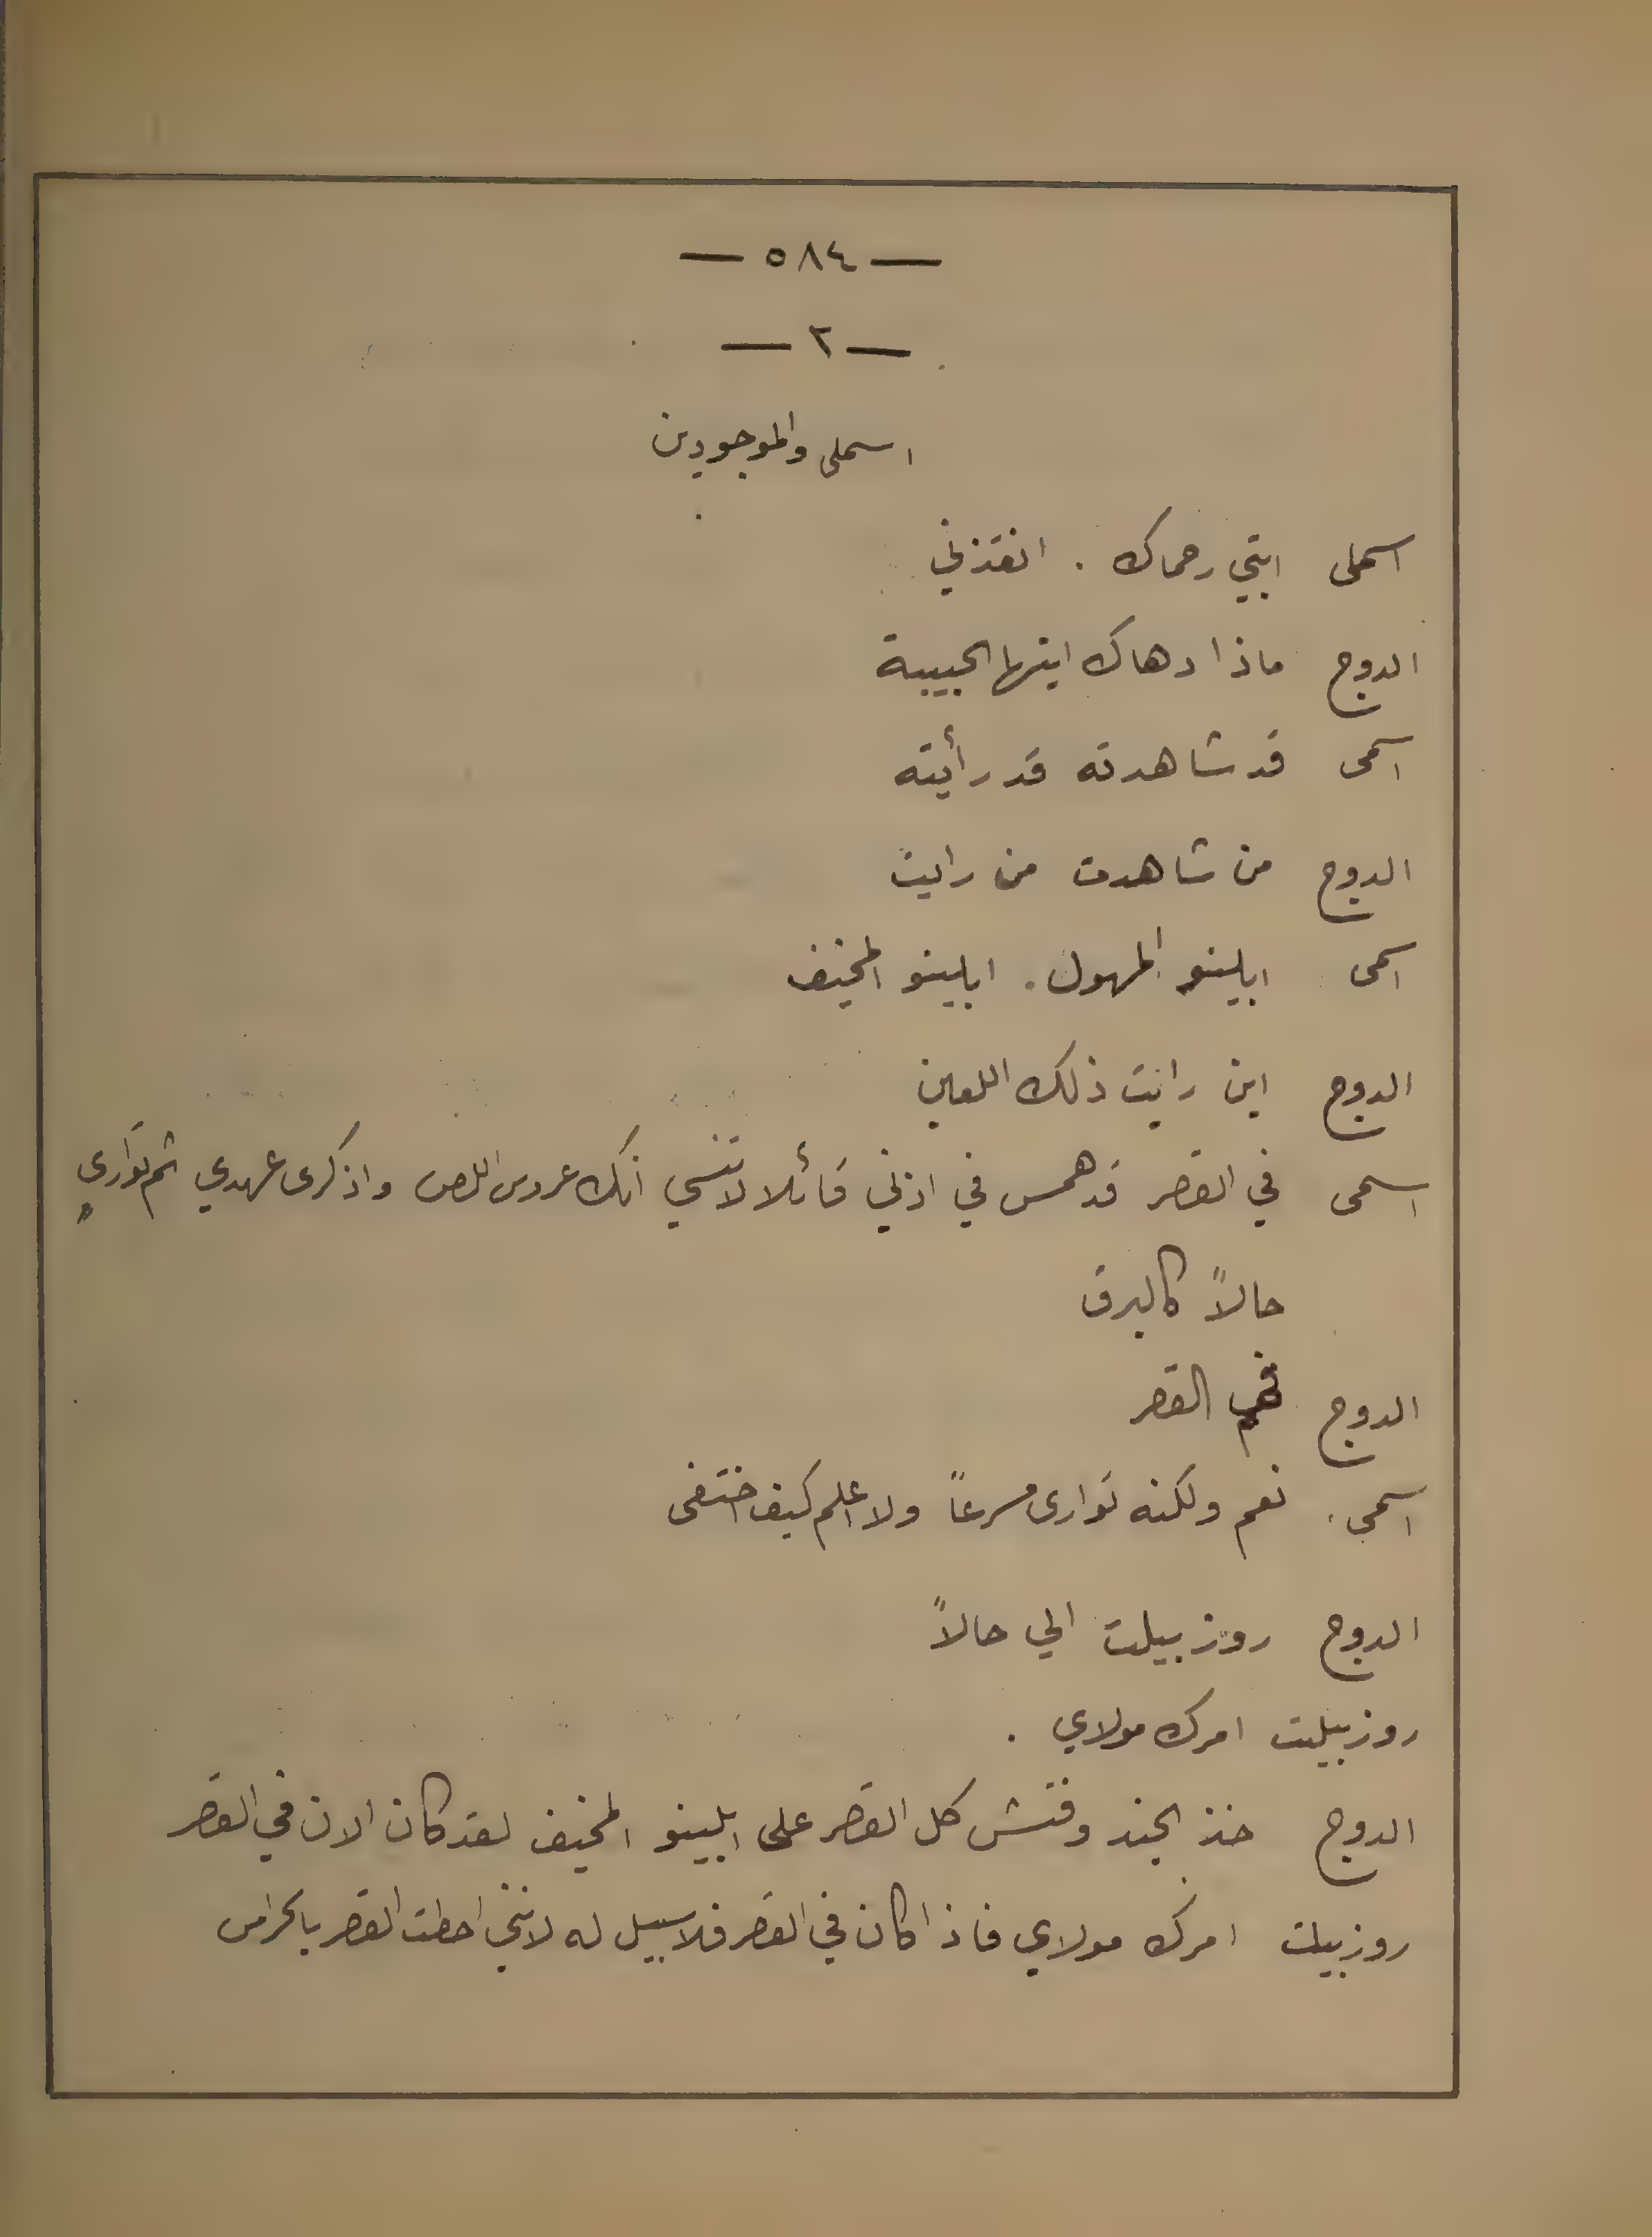 — ٥٨٤ —
— ٢ —
اسملى والموجودين
اسملى ابتي رحماك . انقذني
الدوج ماذا دهاك ايتها الحبيبة
اسمى قد شاهدته قد رأيته
الدوج من شاهدت من رايت
اسمى ابلينو المهول . ابلينو المخيف
الدوج اين رايت ذلك اللعين
اسمى في القصر قد همس في اذني قائلا لا تنسي انك عروس اللص واذكرى عهدي ثم توارى
حالاً كالبرق
الدوج القصر
اسمى نعم ولكنه توارى مسرعاً ولا اعلم كيف اختفى
الدوج روزبيلت الي حالاً
روزبيلت امرك مولاي .
الدوج خذ الجند وفتش كل القصر على ابلينو المخيف لقد كان الان في القصر
روزبيلت امرك مولاي فاذا كان في القصر فلا سبيل له لانني احطت القصر بالحراس